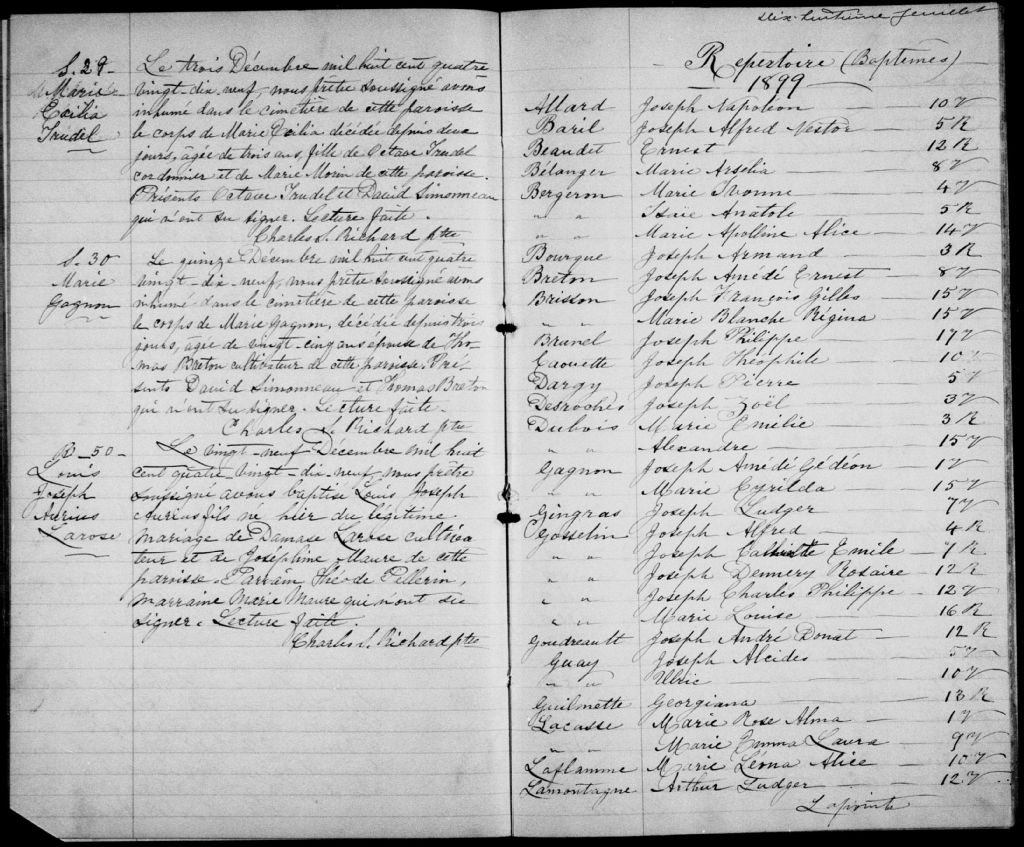 S. 29 -
Marie
Ecilia
Trudel
Le trois Décembre mil huit cent quatre
vingt-dix-neuf, nous prêtre soussigné avons
inhumé dans le cimetière de cette paroisse
le corps de Marie Ecilia décédée depuis deux
jours, agée de trois ans, fille de Octave Trudel
cordonnier et de Marie Morin de cette paroisse.
Présents Octave Trudel et David Simonneau
qui n'ont su signer. Lecture faite.
Charles S. Richard ptre
S. 30
Marie
Gagnon
Le quinze Décembre mil huit cent quatre
vingt-dix-neuf, nous prêtre soussigné avons
inhumé dans le cimetière de cette paroisse
le corps de Marie Gagnon, décédée depuis trois
jours, agée de vingt-cinq ans epouse de Tho-
mas Breton cultivateur de cette paroisse. Pré-
sents David Simonneau et Thomas Breton
qui n'ont su signer. Lecture faite.
Charles S. Richard ptre
B - 50 -
Louis
Joseph
Aurius
Larose
Le vingt-neuf Décembre mil huit
cent quatre-vingt-dix-neuf, nous prêtre
soussigné avons baptisé Louis Joseph
Aurius fils né hier du légitime
mariage de Damase Larose cultiva
teur et de Joséphine Maure de cette
paroisse. Parrain Théode Pellerin,
marraine Marie Maure qui n'ont su
signer. Lecture faite.
Charles S. Richard ptre
dix-huitième feuillet
Repertoire (Baptêmes)
1899
Allard Joseph Napoléon 10 V
Baril Joseph Alfred Nestor 5 R
Beaudet Ernest 12 R
Bélanger Marie Arselia 8 V
Bergeron Marie Ivonne 4 V
" " Isaie Anatole 5 R
" " Marie Apolline Alice 14 V
Bourgue Joseph Armand 3 R
Breton Joseph Amédé Ernest 8 V
Brisson Joseph François Gilles 15 V
" " Marie Blanche Régina 15 V
Brunel Joseph Philippe 17 V
Caouette Joseph Théophile 10
Dargy Joseph Pierre 5 V
Desroches Joseph Zoël 3 V
Dubois Marie Emélie 3 R
" " Alexandre 15 V
Gagnon Joseph Amédé Gédéon 1 V
" " Marie Cyrilda 15 V
Gingras Joseph Ludger 7 V
Gosselin Joseph Alfred 4 R
" " Joseph Emile 7 R
" " Joseph Dennery Rosaire 12 R
" " Joseph Charles Philippe 12 V
" " Marie Louise 16 R
Goudreault Joseph André Donat 12 R
Guay Joseph Alcides 5 V
" " Ulric 10 V
Guilmette Georgiana 13 R
Lacasse Marie Rose Alma 1 V
" " Marie Emma Laura 9 V
Laflamme Marie Léona Alice 10 V
Lamontagne Arthur Ludger 12 V
Lapointe